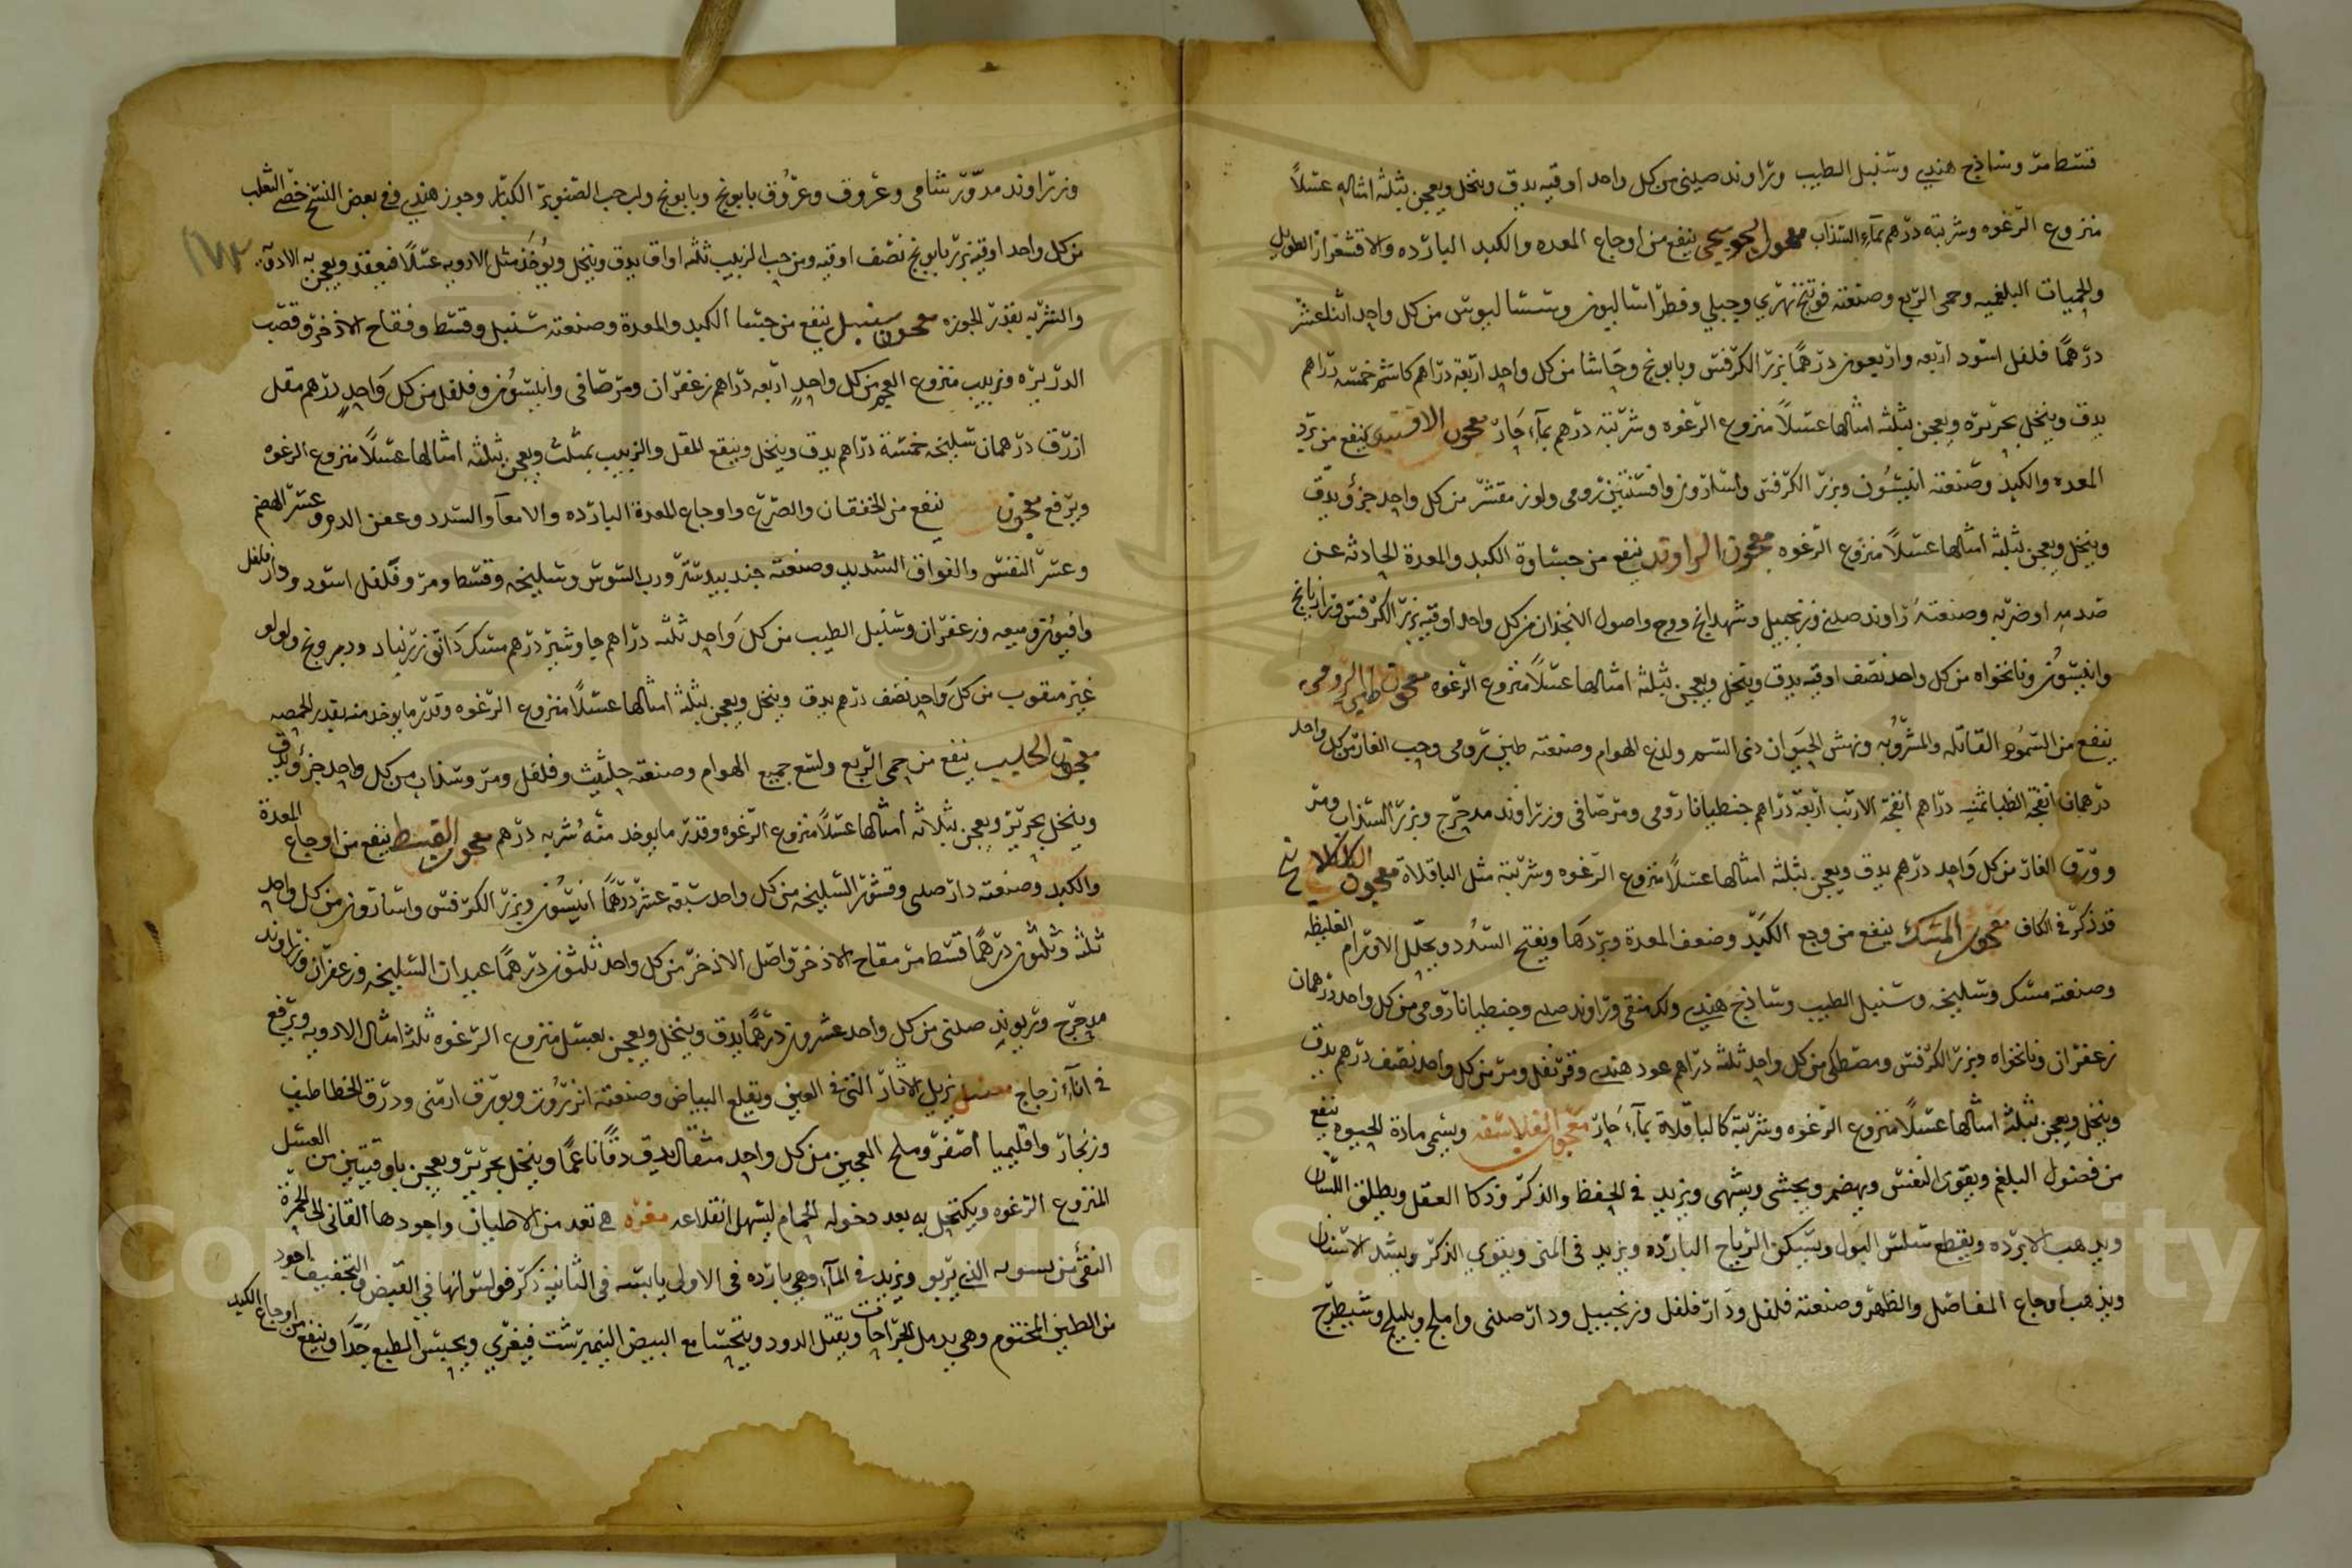 قسط مر وساذج هندي وسنبل الطيب وراوند صيني من كل واحد اوقيه يدق وينخل ويعجن بثلثة امثاله عسلاً
منزوع الرغوه وشربته درهم بماء السذاب معجون ينفع من اوجاع المعده والكبد البارده والاقشعرار الطويل
والحميات البلغميه وحمى الربع وصنعته فوتنج نهري وجبلي وفطراساليون وسساليوس من كل واحد اثناعشر
درهمًا فلفل اسود اربعه واربعون درهمًا بزر الكرفس وبابونج وحاشا من كل واحد اربعة دراهم كاشم خمسه دراهم
يدق وينخل بحريره ويعجن بثلثه امثالها عسلاً منزوع الرغوه وشربته درهم بماء حار معجون ينفع من برد
المعده والكبد وصنعته انيسون وبزر الكرفس واسارون وافسنتين رومى ولوز مقشر من كل واحد جزؤ يدق
وينخل ويعجن بثلثه امثالها عسلاً منزوع الرغوه معجون الراوند ينفع من جساوة الكبد والمعدة الحادثه عن
صدمه او ضربه وصنعته راوند صينى وزنجبيل وشهدانج ووج واصول الانجذان من كل واحد اوقيه بزر الكرفس ورازيانج
وانيسون ونانخواه من كل واحد نصف اوقيه يدق وينخل ويعجن بثلثه امثالها عسلاً منزوع الرغوه معجون الطين الرومي
ينفع من السموم القاتله والمشروبه ونهش الحيوان ذى السم ولدغ الهوام وصنعته طين رومى وحب الغار من كل واحد
درهمان انفحة الظبا ثمنيه دراهم انفحة الارنب اربعة دراهم جنطيانا رومى ومر صافى وزراوند مدحرج وبزر السذاب ومر
وورق الغار من كل واحد درهم يدق ويعجن بثلثه امثالها عسلاً منزوع الرغوه وشربته مثل الباقلاة معجون الكلكلانج
قد ذكر فى الكاف معجون المسك ينفع من وجع الكبد وضعف المعدة وبردها ويفتح السدد ويحلل الاورام الغليظه
وصنعته مسك وسليخه وسنبل الطيب وساذج هندي ولك منقى وراوند صيني وجنطيانا رومى من كل واحد درهمان
زعفران ونانخواه وبزر الكرفس ومصطكى من كل واحد ثلثه دراهم عود هندي وقرنفل ومر من كل واحد نصف درهم يدق
وينخل ويعجن بثلثه امثالها عسلاً منزوع الرغوه وشربته كالباقلاة بماء حار معجون الفلاسفه ويسمى مادة الحيوه ينفع
من فضول البلغم ويقوى النفس ويهضم ويجشى ويشهى ويزيد في الحفظ والذكر وذكا العقل ويطلق اللسان
ويذهب الابرده ويقطع سلس البول ويسكن الرياح البارده ويزيد في المنى ويقوي الذكر ويشد الاسنان
ويذهب اوجاع المفاصل والظهر وصنعته فلفل ودار فلفل وزنجبيل ودار صينى واملج وبليلج وشيطرج
وزراوند مدور شامى وعروق وعروق بابونج وبابونج ولب حب الصنوبر الكبار وجوز هندي وفي بعض النسخ خصى الثعلب
من كل واحد اوقيه بزر بابونج نصف اوقيه ومن حب الزبيب ثلثه اواق يدق وينخل ويوخذ مثل الادويه عسلاً فيعقد ويعجن به الادويه
١٧٣
والشربه بقدر الجوزه معجون سنبل ينفع من جسا الكبد والمعدة وصنعته سنبل وقسط وفقاح الاذخر وقصب
الذريره وزبيب منزوع العجم من كل واحد اربعه دراهم زعفران ومر صافى وانيسون وفلفل من كل واحد درهم مقل
ازرق درهمان سليخه خمسة دراهم يدق وينخل وينقع المقل والزبيب بمثلث ويعجن بثلثه امثالها عسلاً منزوع الرغوه
ويرفع معجون ينفع من الخفقان والصرع واوجاع المعدة البارده والامعآ والسدد وعفن الدم وعسر الهضم
وعسر النفس والفواق الشديد وصنعته جندبيدستر ورب السوس وسليخه وقسط ومر وفلفل اسود ودارفلفل
وافيون وميعه وزعفران وسنبل الطيب من كل واحد ثلثه دراهم جاوشير درهم مسك دانق زرنباد ودرونج ولولو
غير مثقوب من كل واحد نصف درهم يدق وينخل ويعجن بثلثه امثالها عسلاً منزوع الرغوه وقدر ما يوخذ منه بقدر الحمصه
معجون الحلتيت ينفع من حمى الربع ولسع جميع الهوام وصنعته حلتيت وفلفل ومر وسذاب من كل واحد جزؤ يدق
وينخل بحرير ويعجن بثلاثه امثالها عسلاً منزوع الرغوه وقدر ما يوخذ منه شربه درهم معجون القسط ينفع من اوجاع المعدة
والكبد وصنعته دار صينى وقشور السليخه من كل واحد سبعة عشر درهمًا انيسون وبزر الكرفس واسارون من كل واحد
ثلثه وثلثون درهمًا قسط مر فقاح الاذخر واصل الاذخر من كل واحد ثلثون درهمًا عيدان السليخه وزعفران وزراوند
مدحرج وريوند صينى من كل واحد عشرون درهمًا يدق وينخل ويعجن بعسل منزوع الرغوه ثلثة امثال الادويه ويرفع
في اناء زجاج معسل يزيل الاثار التي في العين ويقلع البياض وصنعته انزروت وبورق ارمنى وذرق الخطاطيف
وزنجار واقليميا اصفر وملح العجين من كل واحد مثقال يدق دقًا ناعمًا وينخل بحرير ويعجن باوقيتين من العسل
المنزوع الرغوه ويكتحل به بعد دخوله الحمام ليسهل انقلاعه مغره هي تعد من الاطيان واجودها القانى الحمرة
النقى الذي يربو ويزيد في المآء وهي بارده في الاولى يابسه في الثانيه ذكر فولس انها في القبض والتجفيف اجود
من الطين المختوم وهي يدمل الجراحات ويقتل الدود ويتحسا مع البيض النيمرشت فيغري ويحبس الطبع جدًا وينفع من اوجاع الكبد